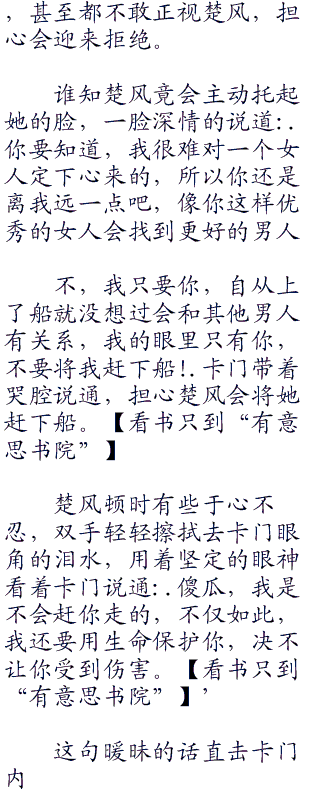 ，甚至都不敢正视楚风，担
心会迎来拒绝。
谁知楚风竟会主动托起
她的脸，一脸深情的说道:.
你要知道，我很难对一个女
人定下心来的，所以你还是
离我远一点吧，像你这样优
秀的女人会找到更好的男人
不，我只要你，自从上
了船就没想过会和其他男人
有关系，我的眼里只有你，
不要将我赶下船!.卡门带着
哭腔说通，担心楚风会将她
赶下船。【看书只到“有意
思书院”】
楚风顿时有些于心不
忍，双手轻轻擦拭去卡门眼
角的泪水，用着坚定的眼神
看着卡门说通:.傻瓜，我是
不会赶你走的，不仅如此，
我还要用生命保护你，决不
让你受到伤害。【看书只到
“有意思书院”】’
这句暖昧的话直击卡门
内